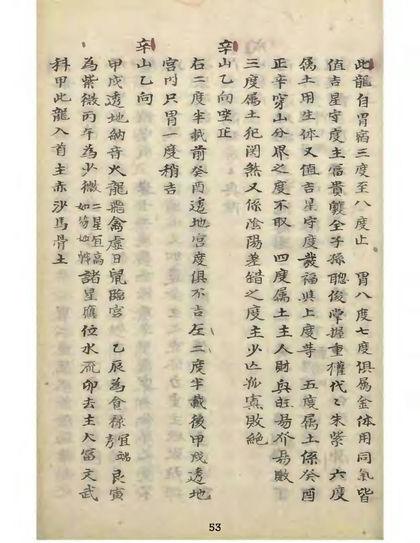 此龍自胃宿三度至八度止　胃八度七度俱属金体用同氣皆
值吉星守度主富貴雙全子孫聰俊掌握重權代〻朱紫　六度
属土用生体又值吉星守度發福與上度等　五度属土係癸酉
正辛穿山分界之度不取　四度属土主人財興旺易𠆤易敗
三度属土犯関煞又係陰陽差錯之度主少亡孤寡敗絶
辛山乙向坐正
右二度半載前癸酉透地宮度俱不吉在二度半載後甲戌透地
宮內只胃一度稍吉
辛山乙向
甲戌透地納音火龍飛禽虛日鼠臨宮　乙辰為食祿宜端艮寅
為紫微丙午為少微二星宜高諸星應位水流卯去主大富文武
科甲此龍入首主赤沙馬骨土
53